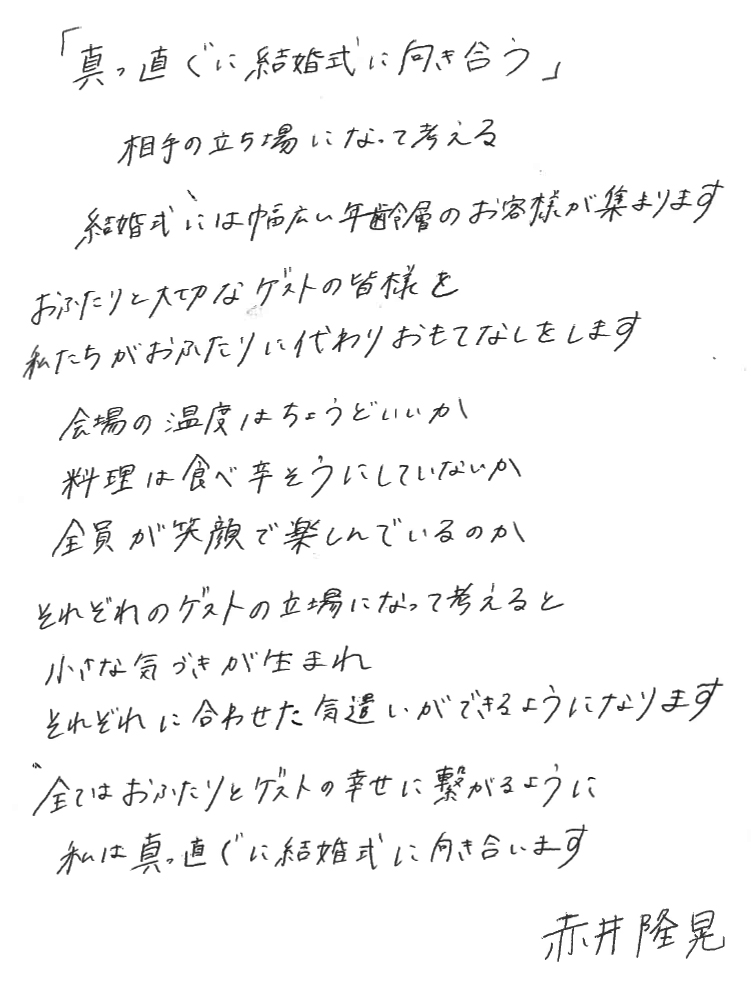 「真っ直ぐに結婚式に向き合う」
相手の立ち場になって考える
結婚式には幅広い年齢層のお客様が集まります
おふたりと大切なゲストの皆様を
私たちがおふたりに代わりおもてなしをします
会場の温度はちょうどいいか
料理は食べ辛そうにしていないか
全員が笑顔で楽しんでいるのか
それぞれのゲストの立場になって考えると
小さな気づきが生まれ
それぞれに合わせた気遣いができるようになります
全てはおふたりとゲストの幸せに繋がるように
私は真っ直ぐに結婚式に向き合います
赤井隆晃